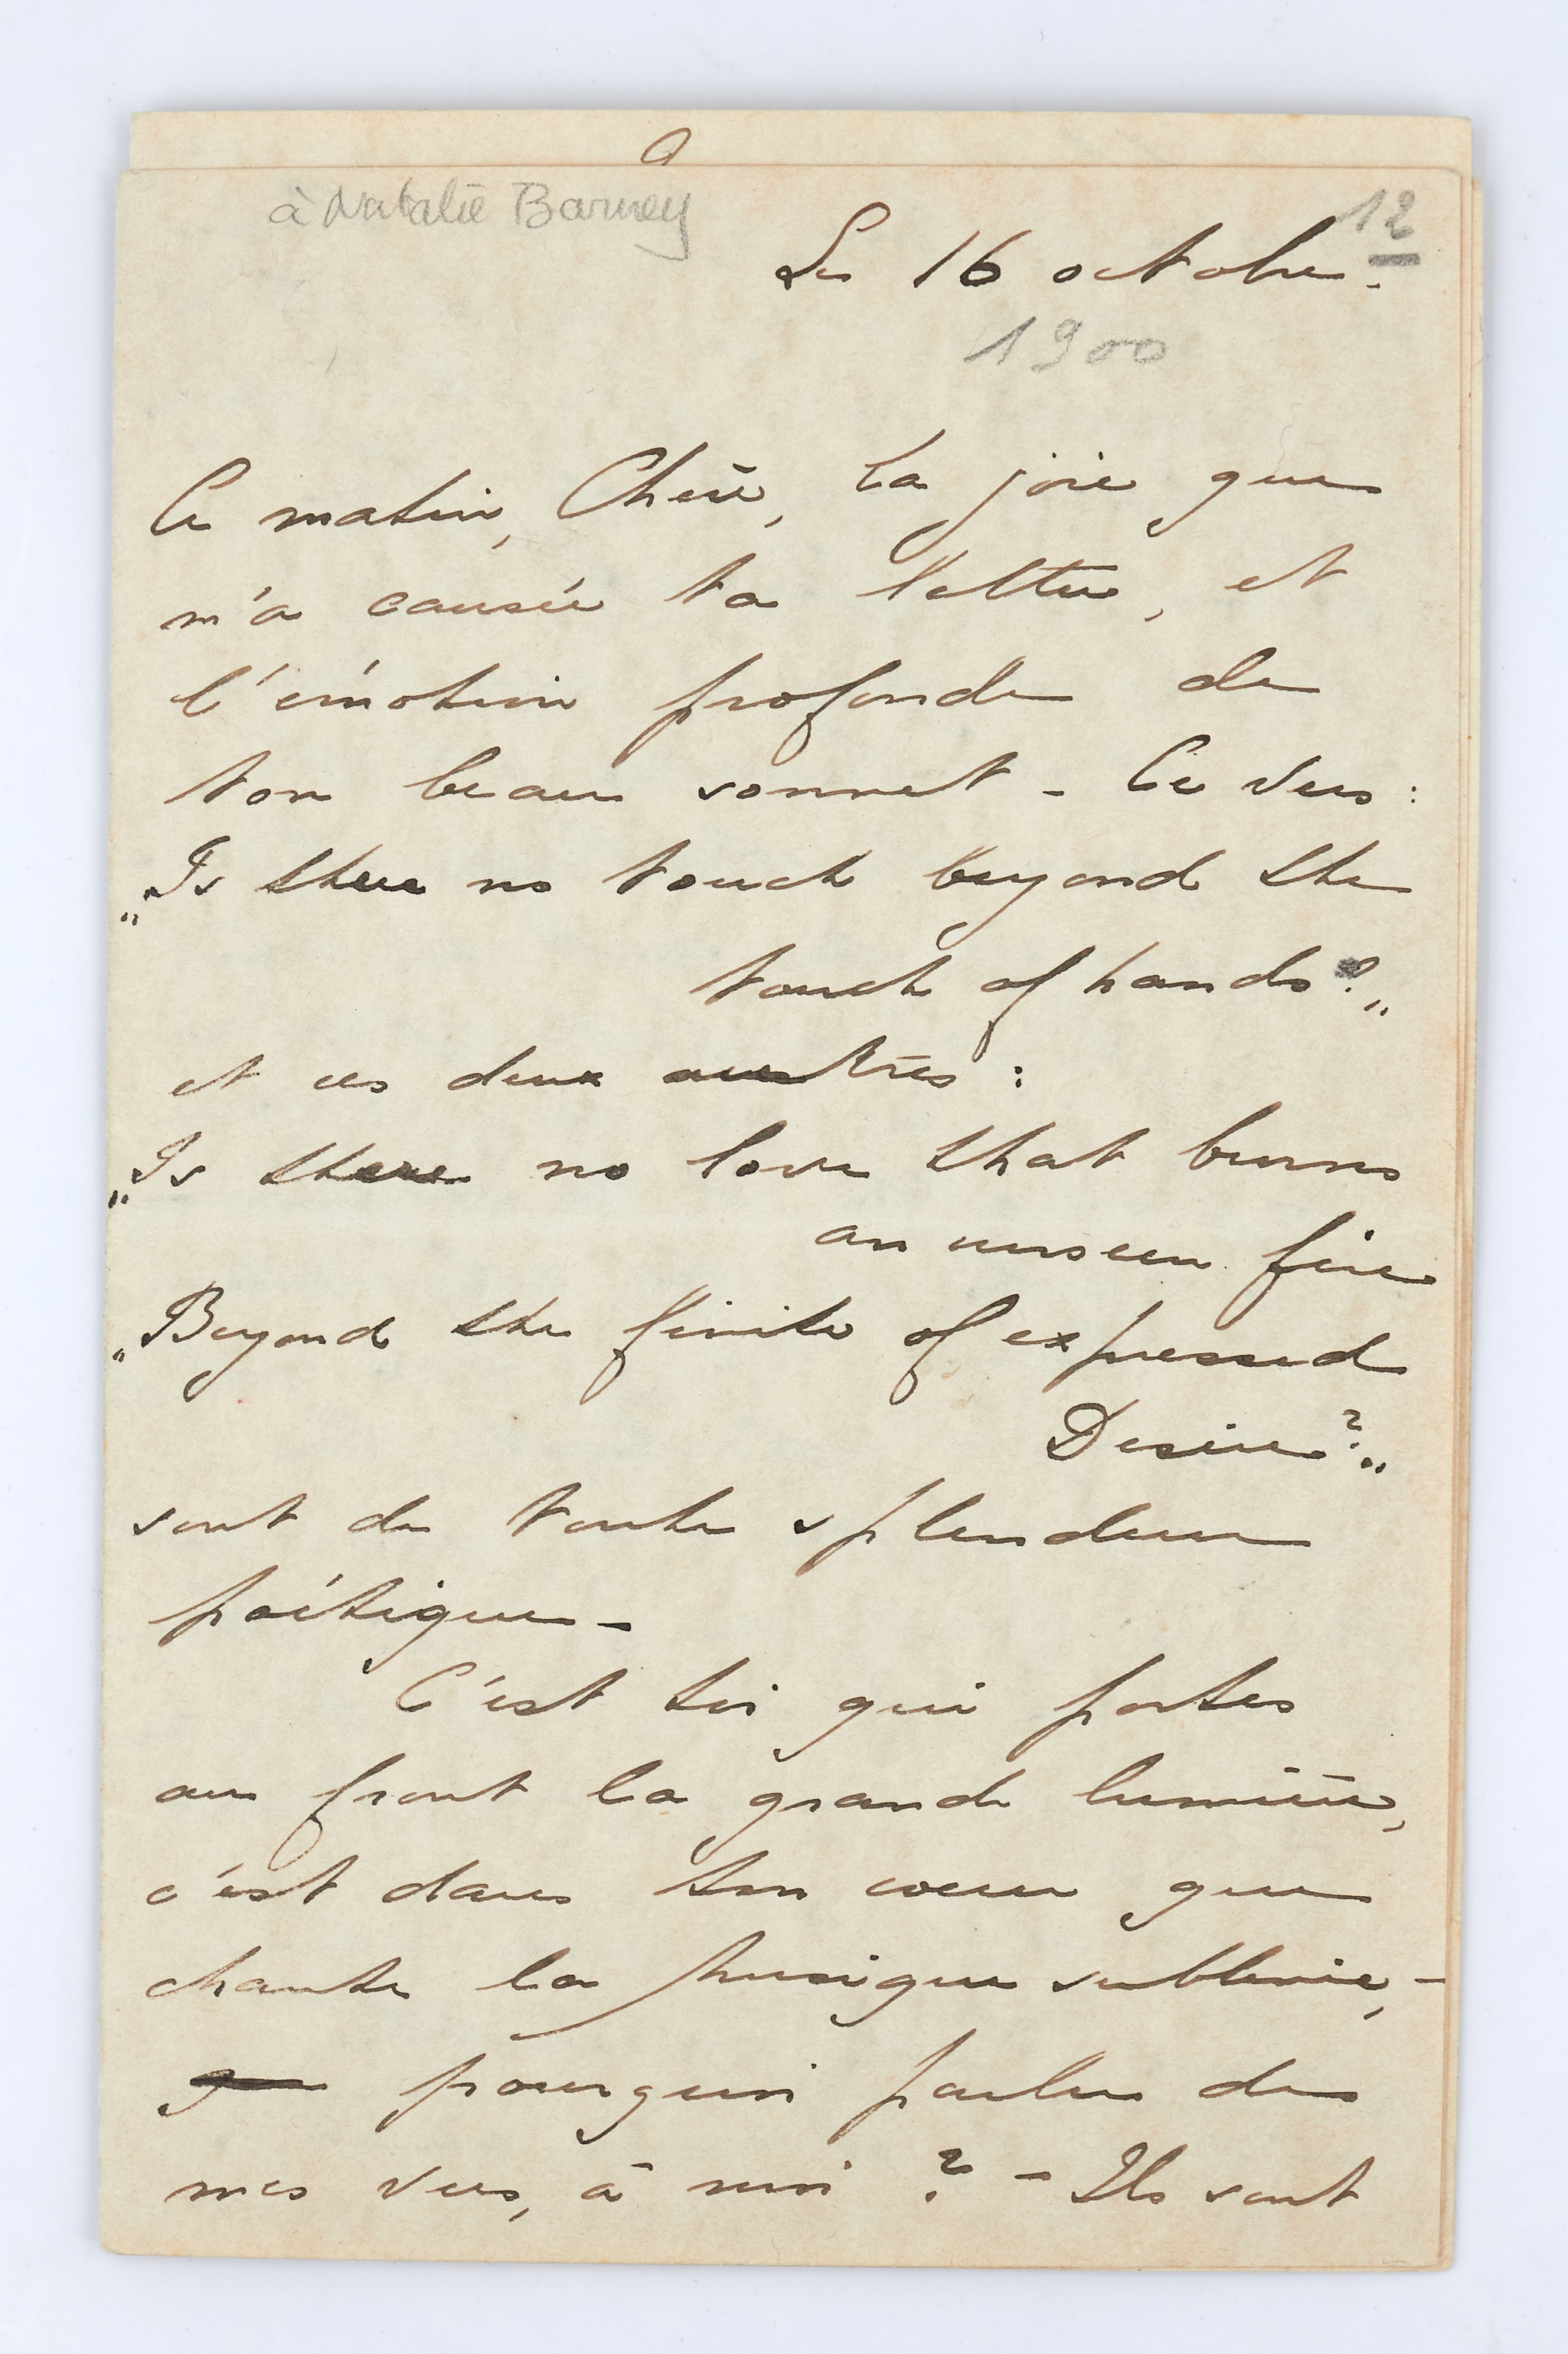 à Natalie Barney
12
Le 16 octobre.
1900
Ce matin, Chère, la joie que
m'a causée ta lettre, et
l'émotion profonde de
ton beau sonnet - Ce vers :
„Is there no touch beyond the
touch of hands?„
et ces deux autres :
„Is there no love that burns
an unseen fire
„Beyond the finite of expressed
Desire?„
sont de toute splendeur
poétique -
C'est toi qui portes
au front la grande lumière,
c'est dans ton coeur que
chante la musique sublime, -
pourquoi parler de
mes vers, à moi ? - Ils sont